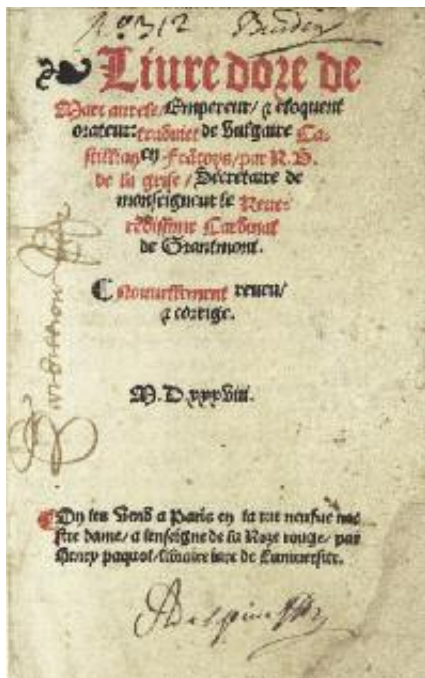 Nº 312
Livre dore de
Marc aurele/ Empereur/ ⁊ eloquent
orateur: traduict de Vulgaire Ca-
stillian en Frãcoys/ par R. B.
de la grise/ Secretaire de
monseigneur le Reue-
rẽdissime Cardinal
de Grantmont.
¶ Nouuellement reueu/
⁊ corrige.
M. D. xxxviii.
¶ On les Vend a Paris en la rue neufue no
stre dame/ a lenseigne de la Roze rouge/ par
Henry paquot/ libraire iure de Luniuersite.